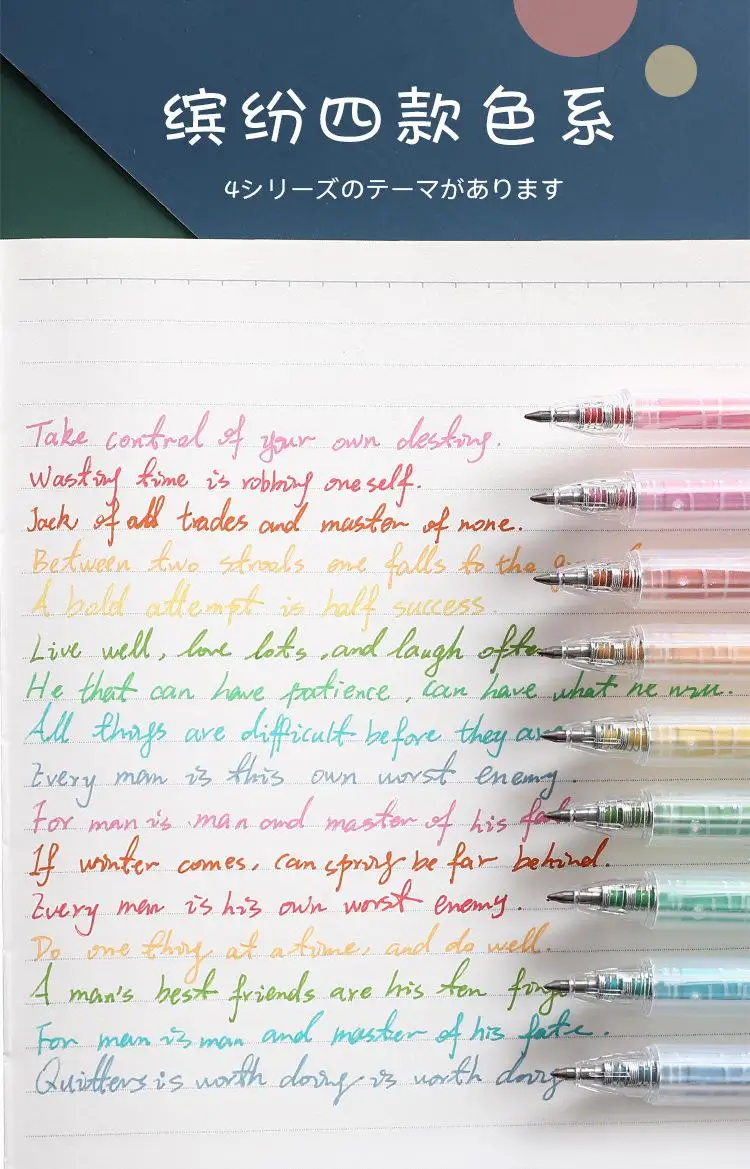 缤纷四款色系
4シリーズのテーマがあります
Take control of your own destiny.
Wasting time is robbing oneself.
Jack of all trades and master of none.
Between two strools one falls to the
A bold attempt is half success.
Live well, love lots, and laugh often
He that can have patience, can have what he
All things are difficult before they are
Every man is this own worst enemy.
For man is man and master of his
If winter comes, can spring be far behind.
Every man is his own worst enemy.
Do one thing at a time, and do well.
A man's best friends are his ten
For man is man and master of his fate.
Quitters is worth doing is worth doing